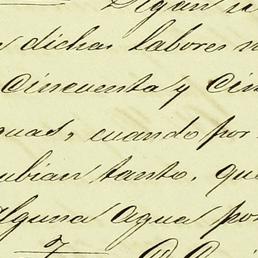 Segun se
dichas labores
Cincuenta y Cin
guas, cuando por
ubian tanto, que
alguna agua por